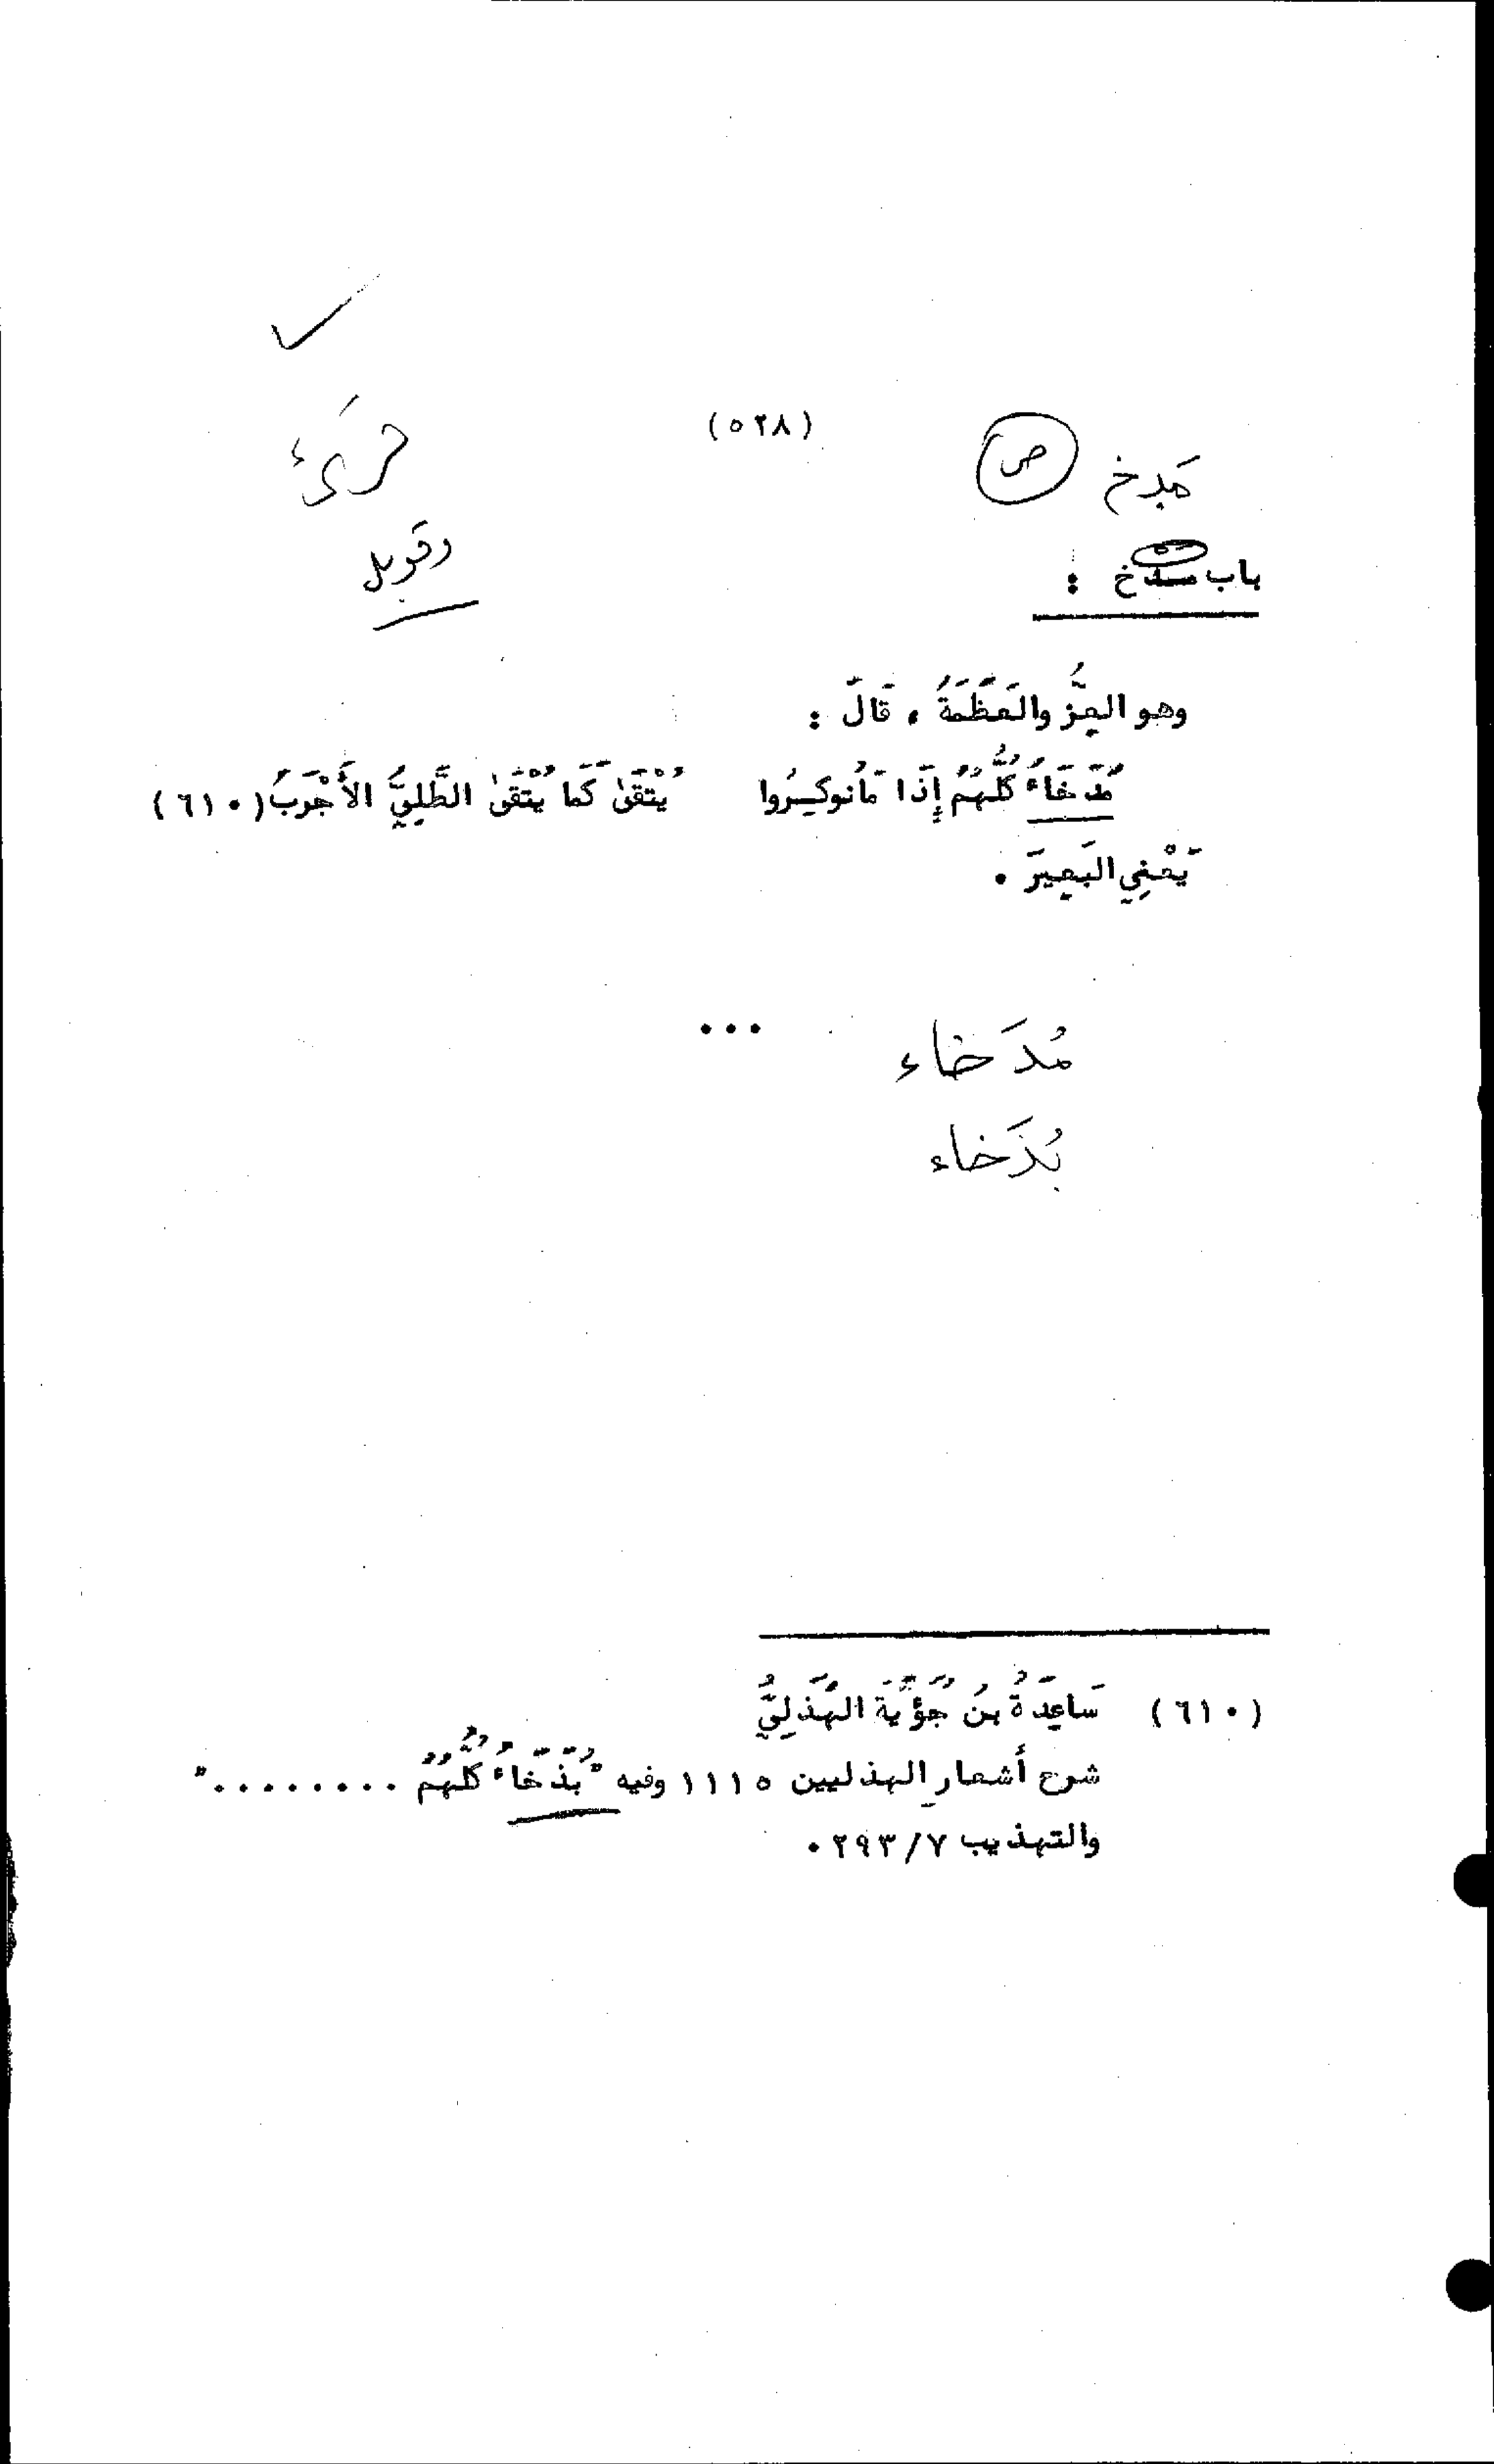 (٥٢٨)
مدخ ص
قرئ
وقوبل
باب مدخ :
وهو العِزُّ والعَظَمَةُ ، قَالَ :
مُدَخَاءُ كُلُّهُمُ إِذَا مَانُوكِرُوا يُتْقَىٰ كَمَا يُتْقَىٰ الطَّلِيُّ الأَجْرَبُ (٦١٠)
يَعْنِي البَعِيرَ .
...
مُدَخاء
بُذَخاء
(٦١٠) سَاعِدَةُ بنُ جُؤَيَّةَ الهُذَلِيُّ
شرح أشعار الهذليين ١١١٥ وفيه "بُذَخَاءُ كُلُّهُمُ ........."
والتهذيب ٢٩٣/٧ .